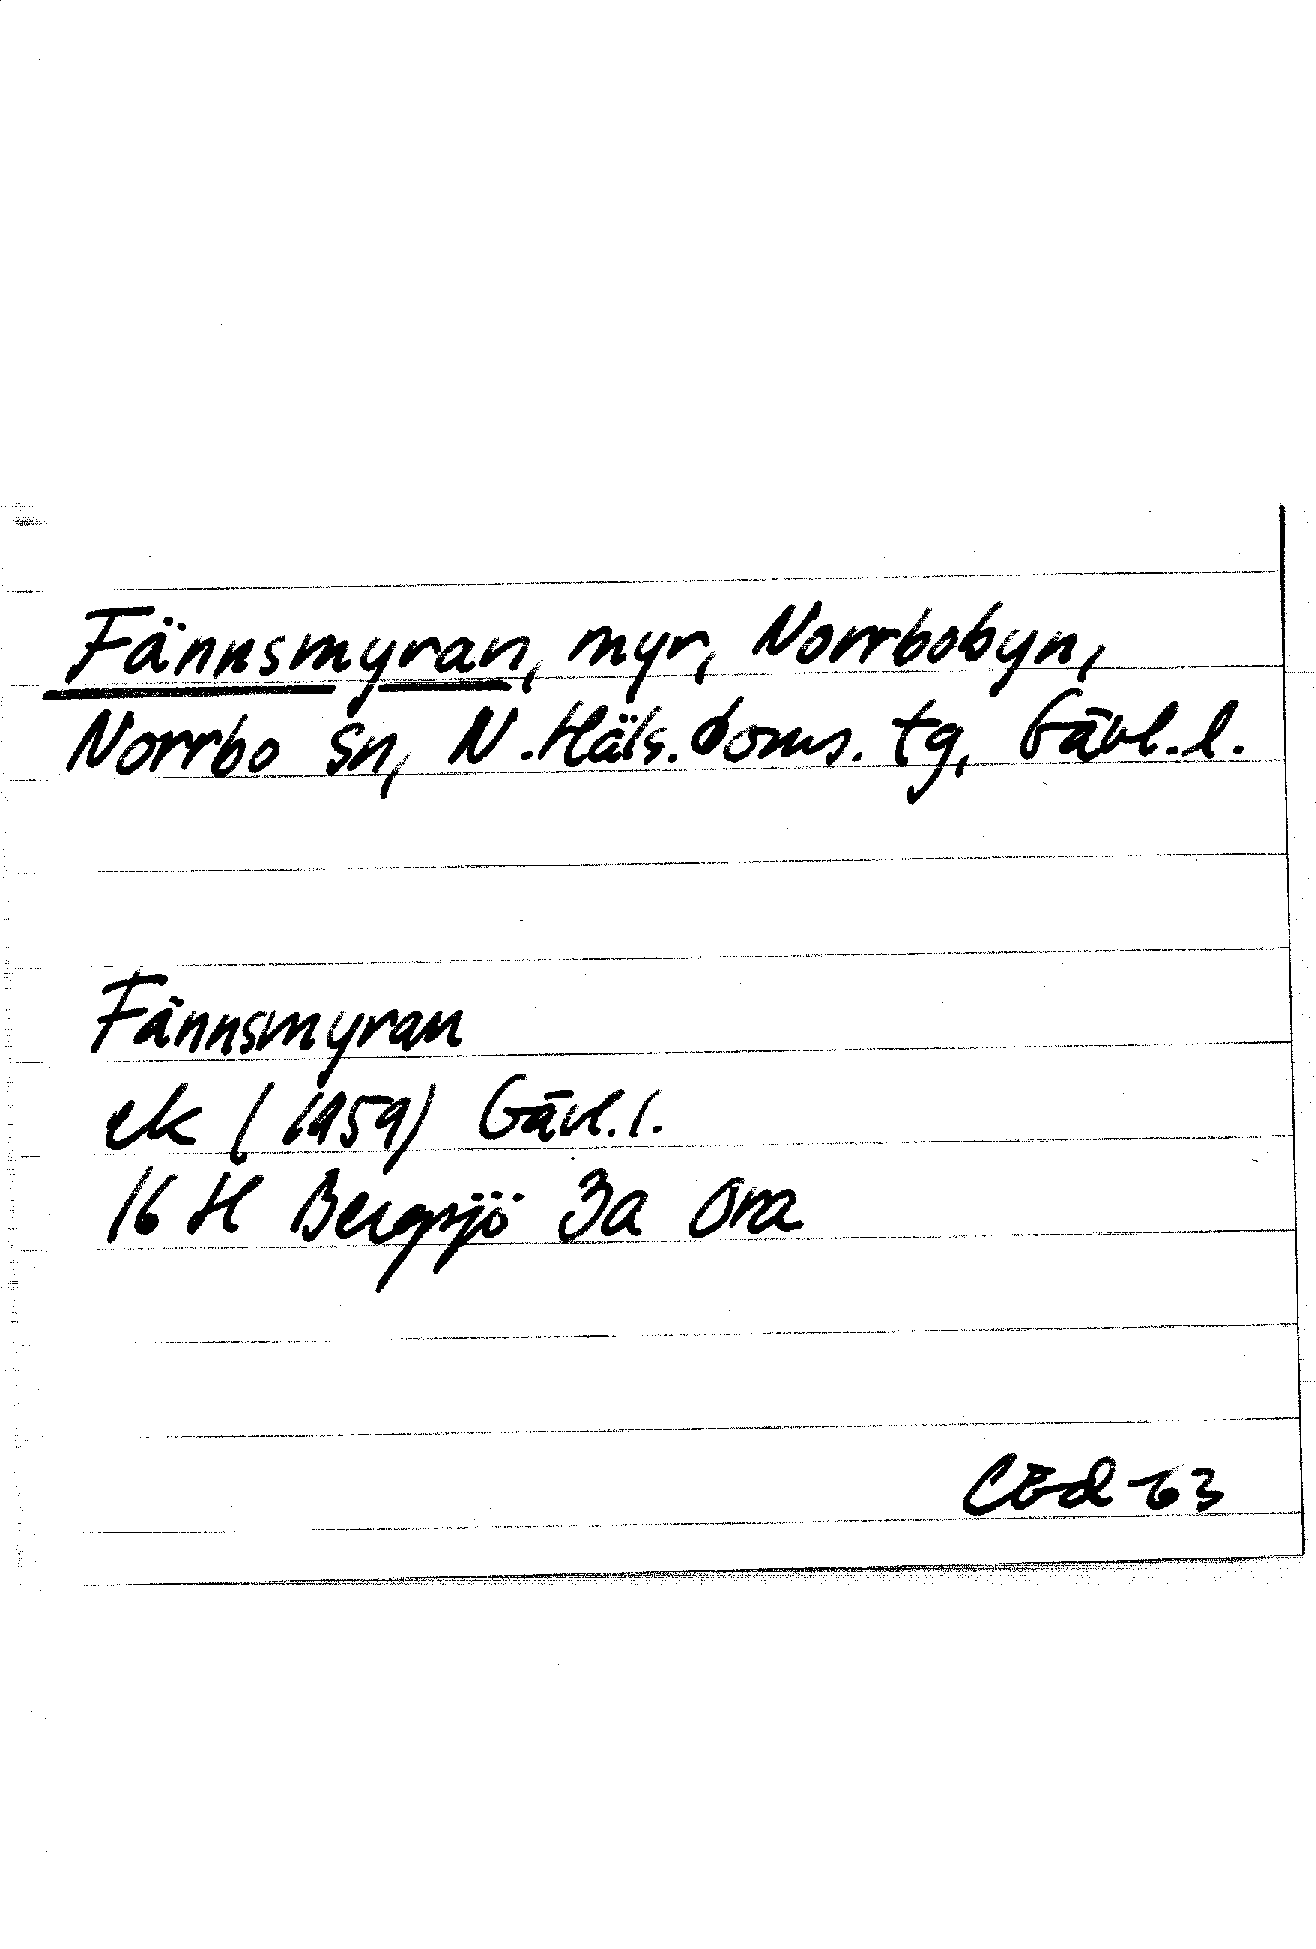 Fännsmyran, myr, Norrbobyn,
Norrbo sn, N. Häls. doms. tg, Gävl. l.
Fännsmyran
ek (1959) Gävl. l.
16 H Bergsjö 3a Ora
CEd -63